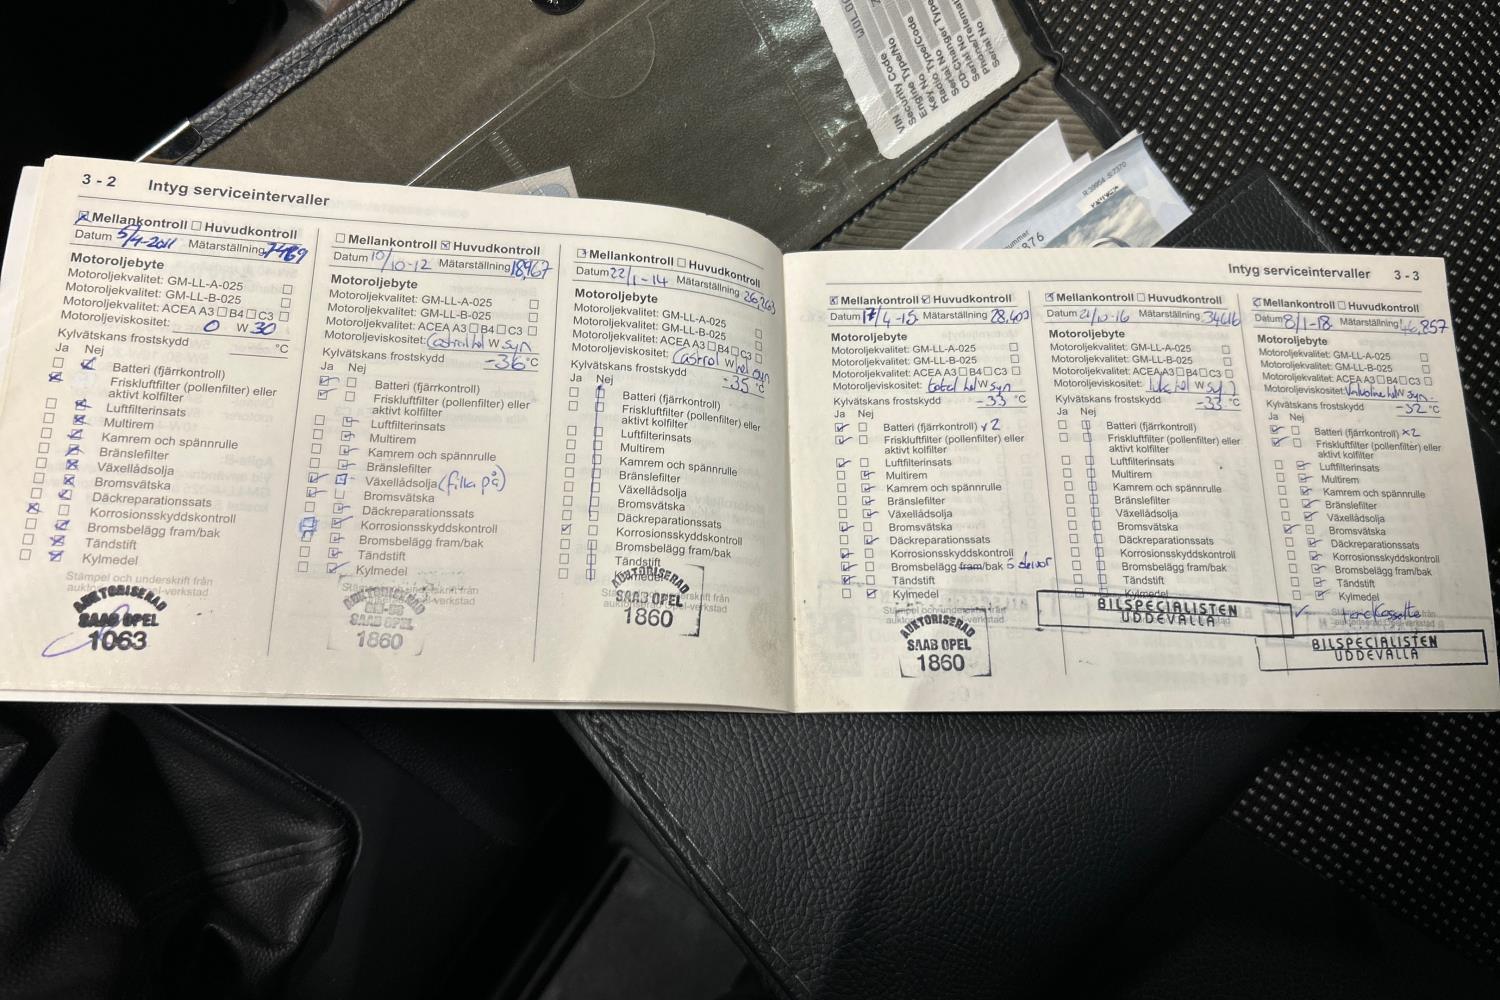 VIN
Security Code
Engine Type/No
Key No
Radio Type/Code
Serial No
CD-Changer Type
Serial No
Phone/Telemat
Serial No
3 - 2 Intyg serviceintervaller
Mellankontroll Huvudkontroll
Datum 5/4-2011 Mätarställning
Motoroljebyte
Motoroljekvalitet: GM-LL-A-025
Motoroljekvalitet: GM-LL-B-025
Motoroljekvalitet: ACEA A3 B4 C3
Motoroljeviskositet: 0 W 30
Kylvätskans frostskydd °C
Ja Nej
Batteri (fjärrkontroll)
Friskluftfilter (pollenfilter) eller
aktivt kolfilter
Luftfilterinsats
Multirem
Kamrem och spännrulle
Bränslefilter
Växellådsolja
Bromsvätska
Däckreparationssats
Korrosionsskyddskontroll
Bromsbelägg fram/bak
Tändstift
Kylmedel
Stämpel och underskrift från
AUKTORISERAD
SAAB OPEL
1063
Mellankontroll Huvudkontroll
Datum 10/10-12 Mätarställning 18,967
Motoroljebyte
Motoroljekvalitet: GM-LL-A-025
Motoroljekvalitet: GM-LL-B-025
Motoroljekvalitet: ACEA A3 B4 C3
Motoroljeviskositet: Castrol hel W syn
Kylvätskans frostskydd -36 °C
Ja Nej
Batteri (fjärrkontroll)
Friskluftfilter (pollenfilter) eller
aktivt kolfilter
Luftfilterinsats
Multirem
Kamrem och spännrulle
Bränslefilter
Växellådsolja (filla på)
Bromsvätska
Däckreparationssats
Korrosionsskyddskontroll
Bromsbelägg fram/bak
Tändstift
Kylmedel
AUKTORISERAD
SAAB OPEL
1860
Mellankontroll Huvudkontroll
Datum 22/1-14 Mätarställning 26,263
Motoroljebyte
Motoroljekvalitet: GM-LL-A-025
Motoroljekvalitet: GM-LL-B-025
Motoroljekvalitet: ACEA A3 B4 C3
Motoroljeviskositet: Castrol W hel syn
Kylvätskans frostskydd -35 °C
Ja Nej
Batteri (fjärrkontroll)
Friskluftfilter (pollenfilter) eller
aktivt kolfilter
Luftfilterinsats
Multirem
Kamrem och spännrulle
Bränslefilter
Växellådsolja
Bromsvätska
Däckreparationssats
Korrosionsskyddskontroll
Bromsbelägg fram/bak
Tändstift
Kylmedel
AUKTORISERAD
SAAB OPEL
1860
Intyg serviceintervaller 3 - 3
Mellankontroll Huvudkontroll
Datum 17/4-15 Mätarställning 28,403
Motoroljebyte
Motoroljekvalitet: GM-LL-A-025
Motoroljekvalitet: GM-LL-B-025
Motoroljekvalitet: ACEA A3 B4 C3
Motoroljeviskositet: hel W syn
Kylvätskans frostskydd -33 °C
Ja Nej
Batteri (fjärrkontroll) x2
Friskluftfilter (pollenfilter) eller
aktivt kolfilter
Luftfilterinsats
Multirem
Kamrem och spännrulle
Bränslefilter
Växellådsolja
Bromsvätska
Däckreparationssats
Korrosionsskyddskontroll
Bromsbelägg fram/bak
Tändstift
Kylmedel
AUKTORISERAD
SAAB OPEL
1860
Mellankontroll Huvudkontroll
Datum 21/10-16 Mätarställning 34616
Motoroljebyte
Motoroljekvalitet: GM-LL-A-025
Motoroljekvalitet: GM-LL-B-025
Motoroljekvalitet: ACEA A3 B4 C3
Motoroljeviskositet: hel W syn
Kylvätskans frostskydd -33 °C
Ja Nej
Batteri (fjärrkontroll)
Friskluftfilter (pollenfilter) eller
aktivt kolfilter
Luftfilterinsats
Multirem
Kamrem och spännrulle
Bränslefilter
Växellådsolja
Bromsvätska
Däckreparationssats
Korrosionsskyddskontroll
Bromsbelägg fram/bak
Tändstift
Kylmedel
BILSPECIALISTEN
UDDEVALLA
Mellankontroll Huvudkontroll
Datum 8/1-18 Mätarställning 46,857
Motoroljebyte
Motoroljekvalitet: GM-LL-A-025
Motoroljekvalitet: GM-LL-B-025
Motoroljekvalitet: ACEA A3 B4 C3
Motoroljeviskositet: Valvoline hel W syn
Kylvätskans frostskydd -32 °C
Ja Nej
Batteri (fjärrkontroll) x2
Friskluftfilter (pollenfilter) eller
aktivt kolfilter
Luftfilterinsats
Multirem
Kamrem och spännrulle
Bränslefilter
Växellådsolja
Bromsvätska
Däckreparationssats
Korrosionsskyddskontroll
Bromsbelägg fram/bak
Tändstift
Kylmedel
BILSPECIALISTEN
UDDEVALLA